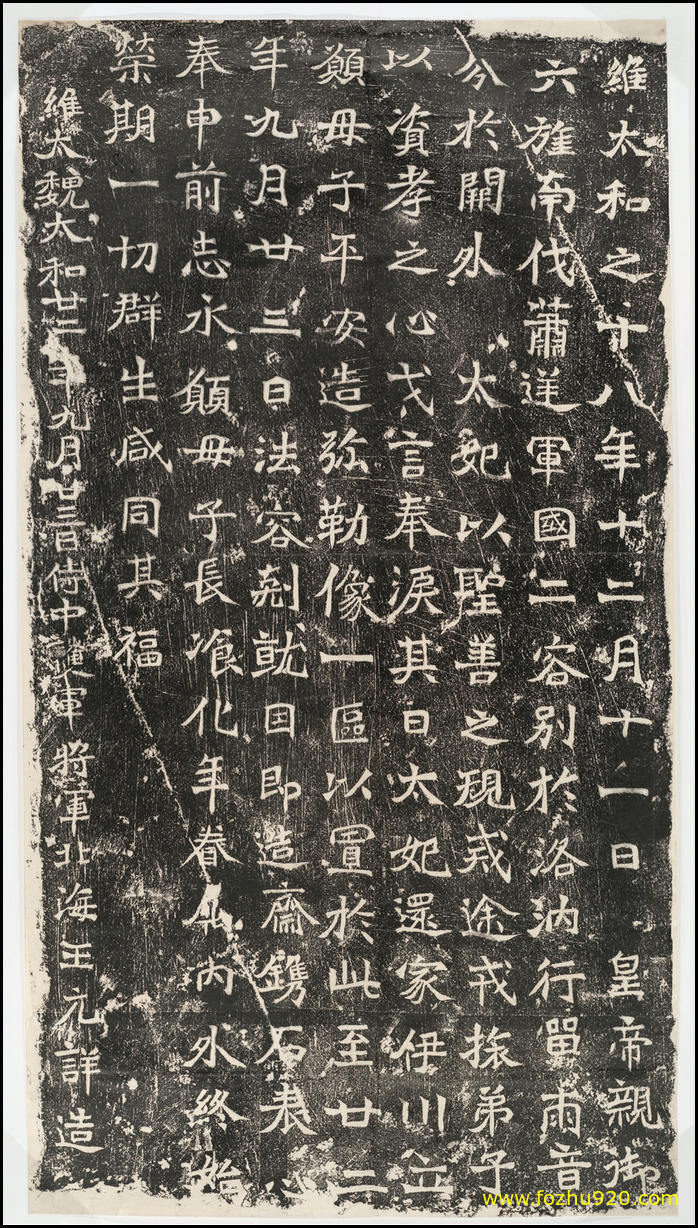 維太和之十八年十二月十一日 皇帝親御
六旌南伐蕭逆軍國二容別於洛汭行留兩音
分於闕外 太妃以聖善之規戒途戎旅弟子
以資孝之心戈言奉淚其日太妃還家伊川立
願母子平安造弥勒像一區以置於此至廿二
年九月廿三日法容剋就因即造齋鐫石表心
奉申前志永願母子長飡化年眷屬內外終始
榮期一切群生咸同其福
維太魏太和廿二年九月廿三日侍中護軍將軍北海王元詳造
www.fozhu920.com